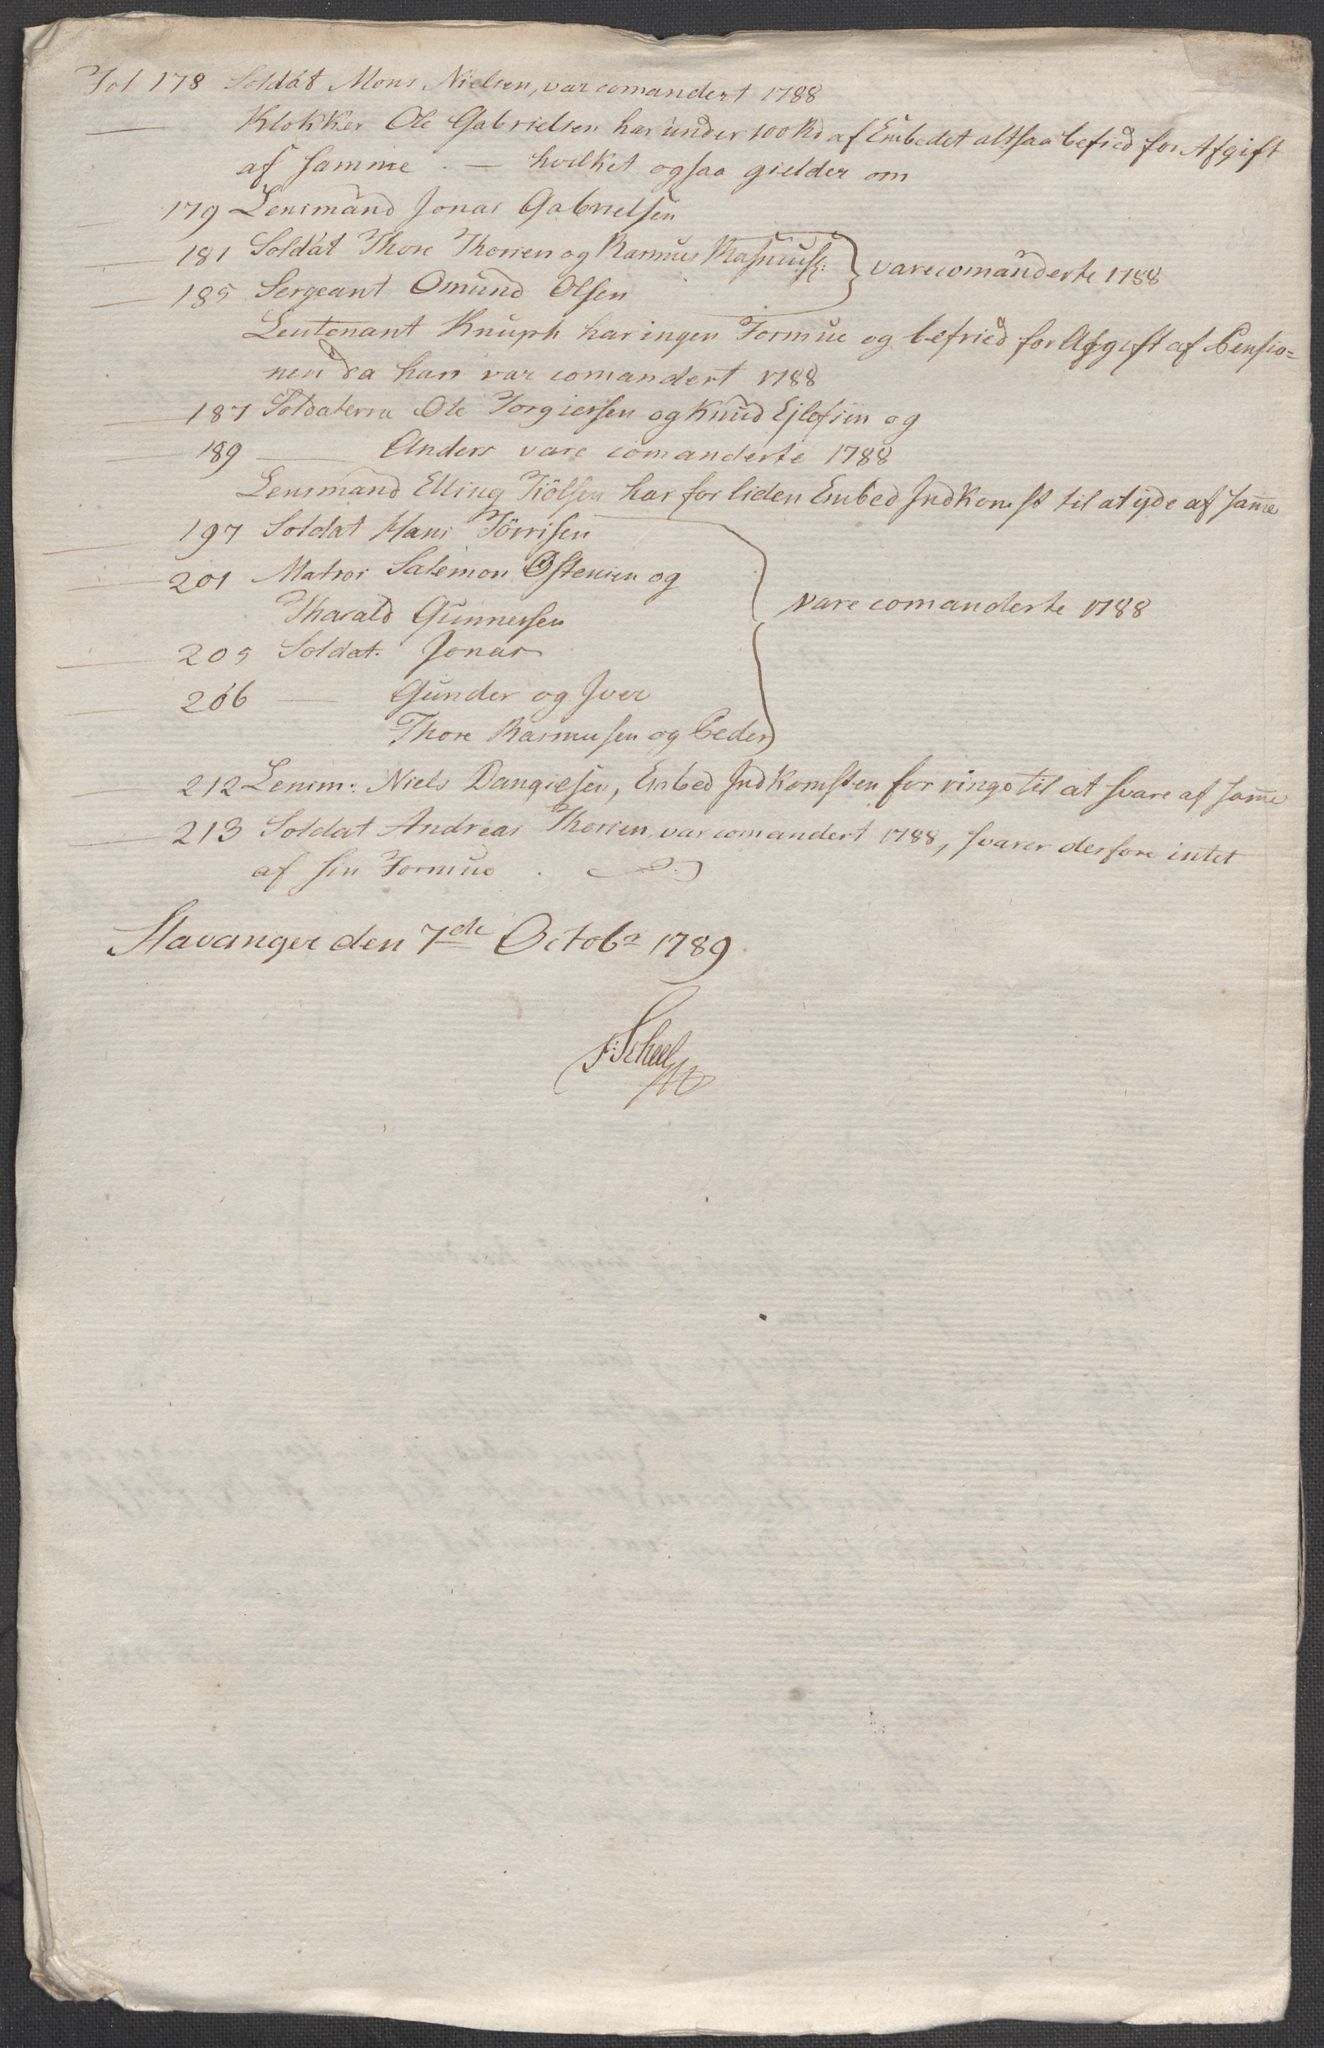 Fol 178 Soldat Mons Nielsen, var comandert 1788
— Klokker Ole Gabrielsen har under 100 Rd af Embedet altsaa befried for Afgift
af samme. — hvilket ogsaa gielder om
— 179 Lensmand Jonas Gabrielsen
— 181 Soldat Thore Thorsen og Rasmus Rasmuss: } vare comanderte 1788
— 185 Sergeant Omund Olsen
Leutenant Knuph har ingen Formue og befried for Afgift af Pensio=
nen da han var comandert 1788
— 187 Soldaterne Ole Torgiersen og Knud Ejlefsen og
— 189 — Anders vare comanderte 1788
Lensmand Elling Tiölsen har for liden Embed Indkomst til at yde af same
— 197 Soldat Hans Törrisen
— 201 Matros Salemon Østensen og
Tharald Gunnersen } vare comanderte 1788
— 205 Soldat. Jonas
— 206 — Gunder og Iver
Thore Rasmusen og Peder
— 212 Lensm: Niels Dangielsen, Embed Indkomsten for ringe til at svare af same
— 213 Soldat Andreas Thorsen var comandert 1788, svarer derfore intet
af sin Formue.
Stavanger den 7de Octobr 1789.
Scheel